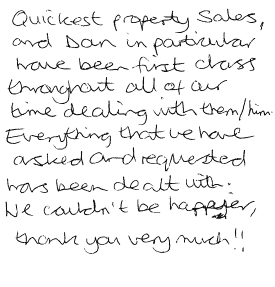 Quickest property Sales,
and Dan in particular
have been first class
throughout all of our
time dealing with them/him.
Everything that we have
asked and requested
has been dealt with.
We couldn't be happier,
thank you very much!!